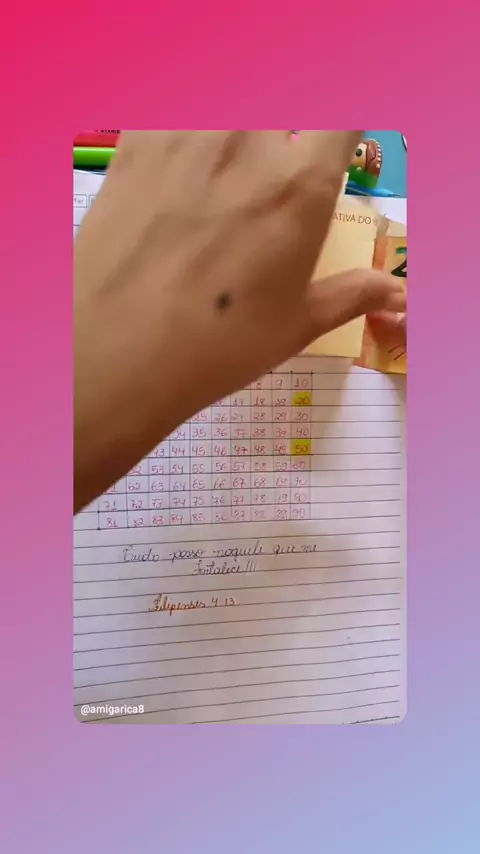 ATIVA DO
2
9 10
17 18 19 20
25 26 27 28 29 30
34 35 36 37 38 39 40
43 44 45 46 47 48 49 50
53 54 55 56 57 58 59 60
62 63 64 65 66 67 68 69 70
71 72 73 74 75 76 77 78 79 80
81 82 83 84 85 86 87 88 89 90
Tudo posso naquele que me
fortalece!!!
Filipenses 4 13
@amigarica8